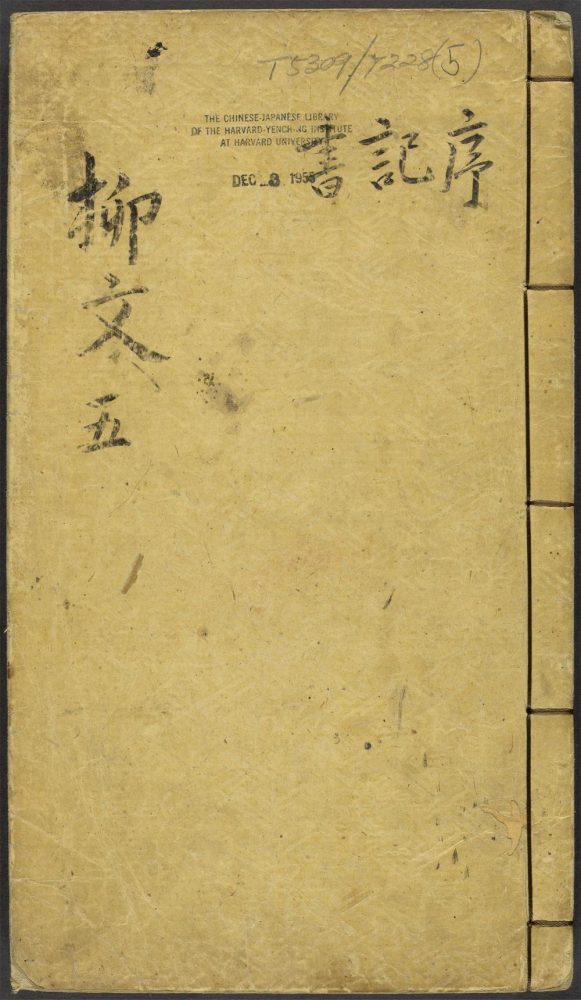 T5309/7228(5)
THE CHINESE-JAPANESE LIBRARY
OF THE HARVARD-YENCHING INSTITUTE
AT HARVARD UNIVERSITY
DEC -8 1955
序記書
柳文五